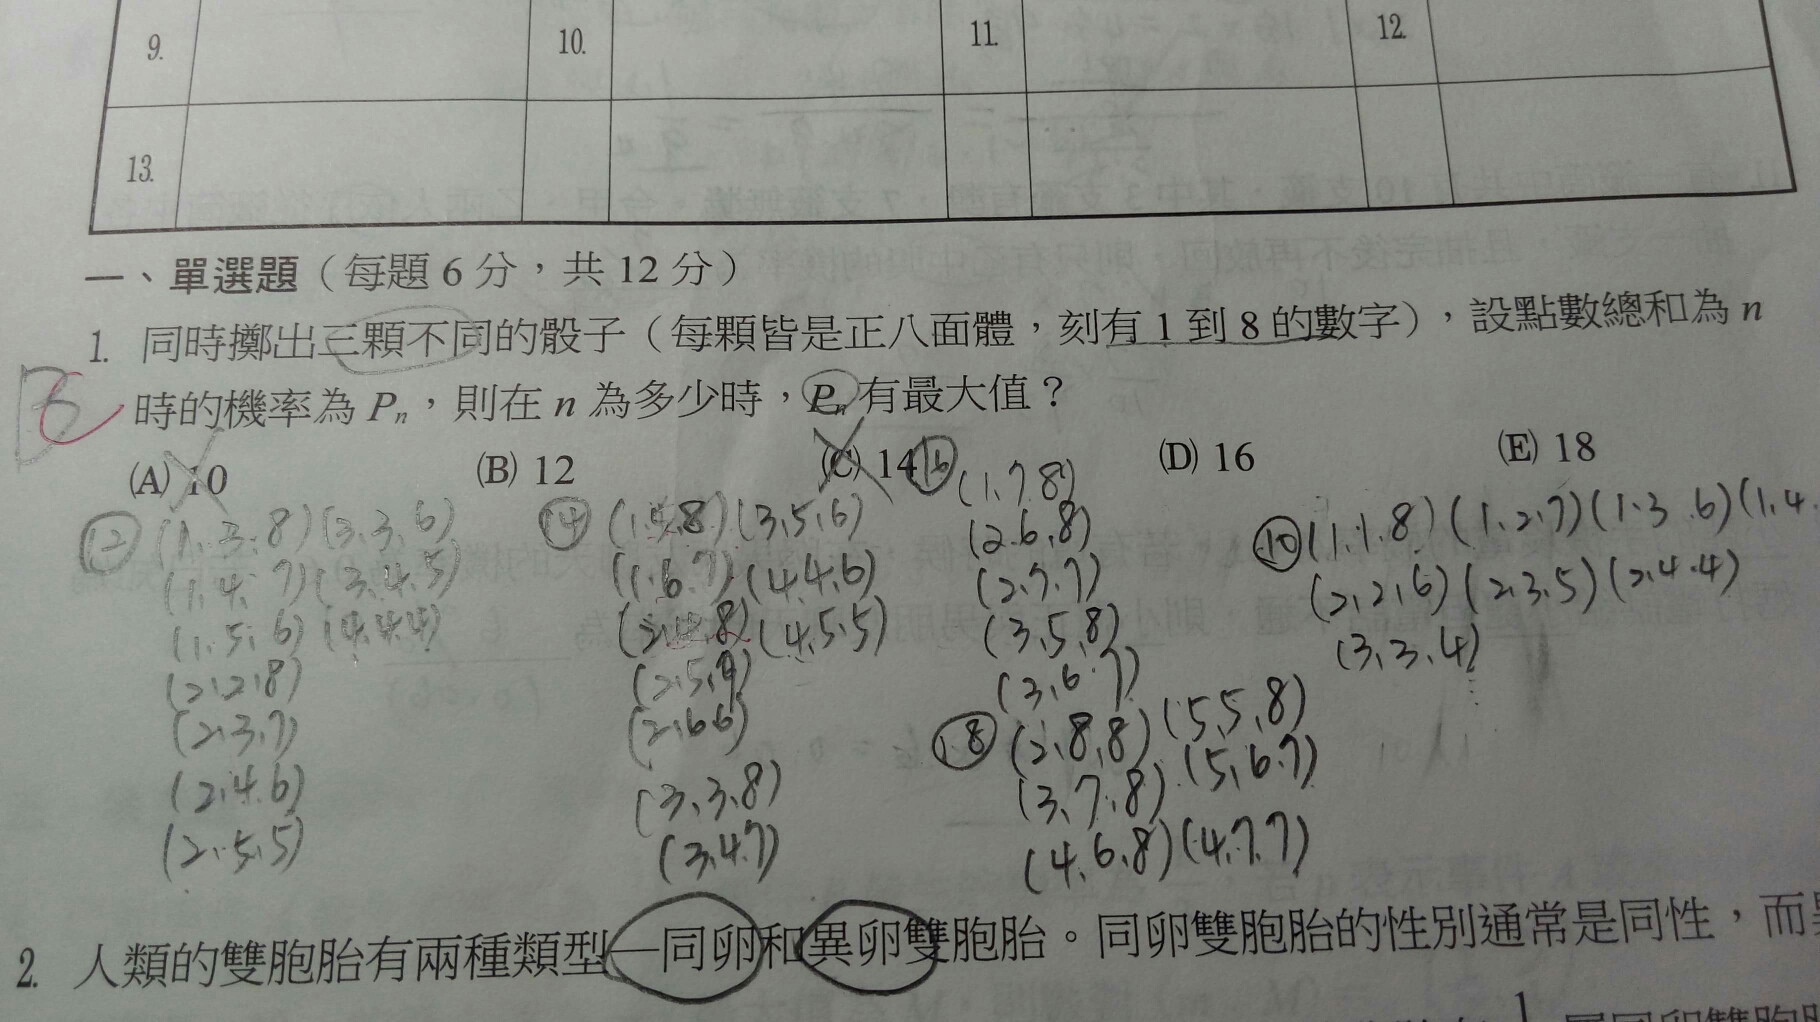 9.
10.
11.
12.
13.
一、單選題（每題 6 分，共 12 分）
1. 同時擲出三顆不同的骰子（每顆皆是正八面體，刻有 1 到 8 的數字），設點數總和為 n
時的機率為 Pn，則在 n 為多少時，Pn 有最大值？
(A) 10 (B) 12 (C) 14 (D) 16 (E) 18
⑫ (1,3,8) (3,3,6)
(1,4,7) (3,4,5)
(1,5,6) (4,4,4)
(2,2,8)
(2,3,7)
(2,4,6)
(2,5,5)
⑭ (1,5,8) (3,5,6)
(1,6,7) (4,4,6)
(2,4,8) (4,5,5)
(2,5,7)
(2,6,6)
(3,3,8)
(3,4,7)
⑯ (1,7,8)
(2,6,8)
(2,7,7)
(3,5,8)
(3,6,7)
⑱ (2,8,8) (5,5,8)
(3,7,8) (5,6,7)
(4,6,8) (4,7,7)
⑩ (1,1,8) (1,2,7) (1,3,6) (1,4,
(2,2,6) (2,3,5) (2,4,4)
(3,3,4)
2. 人類的雙胞胎有兩種類型—同卵和異卵雙胞胎。同卵雙胞胎的性別通常是同性，而